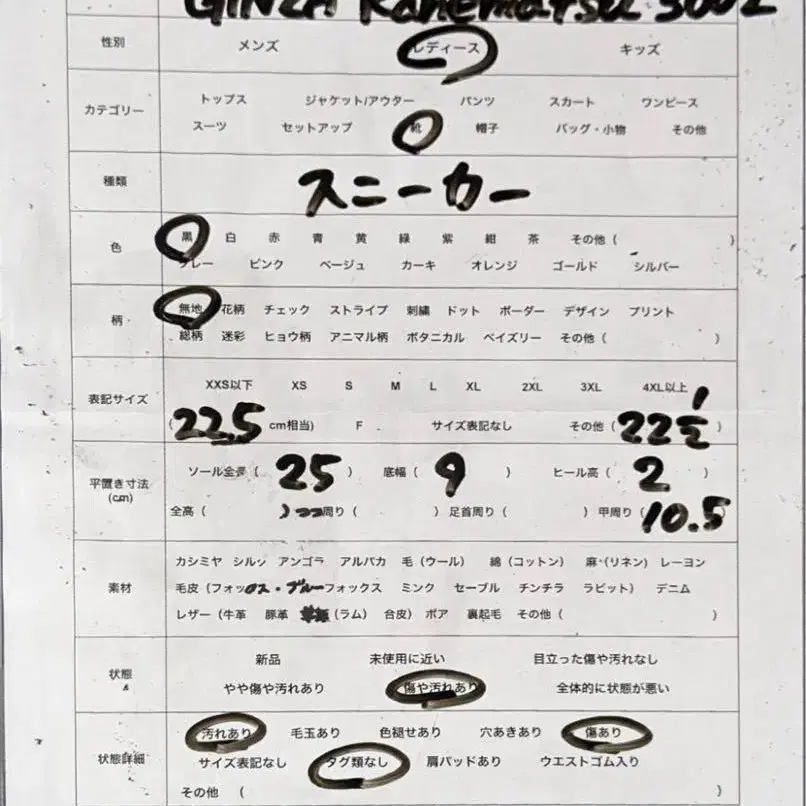 GINZA Kanematsu 3002
性別 メンズ レディース キッズ
カテゴリー トップス ジャケット/アウター パンツ スカート ワンピース
スーツ セットアップ 靴 帽子 バッグ・小物 その他
種類 スニーカー
色 黒 白 赤 青 黄 緑 紫 紺 茶 その他 ( )
グレー ピンク ベージュ カーキ オレンジ ゴールド シルバー
柄 無地 花柄 チェック ストライプ 刺繍 ドット ボーダー デザイン プリント
総柄 迷彩 ヒョウ柄 アニマル柄 ボタニカル ペイズリー その他 ( )
表記サイズ XXS以下 XS S M L XL 2XL 3XL 4XL以上
(22.5 cm相当) F サイズ表記なし その他 (22 1/2)
平置き寸法 (cm) ソール全長 ( 25 ) 底幅 ( 9 ) ヒール高 ( 2 )
全高 ( ) 周り ( ) 足首周り ( ) 甲周り ( 10.5
素材 カシミヤ シルク アンゴラ アルパカ 毛 (ウール) 綿 (コットン) 麻 (リネン) レーヨン
毛皮 (フォックス・ブルーフォックス ミンク セーブル チンチラ ラビット) デニム
レザー (牛革 豚革 (ラム) 合皮) ボア 裏起毛 その他 ( )
状態 新品 未使用に近い 目立った傷や汚れなし
やや傷や汚れあり 傷や汚れあり 全体的に状態が悪い
状態詳細 汚れあり 毛玉あり 色褪せあり 穴あきあり 傷あり
サイズ表記なし タグ類なし 肩パッドあり ウエストゴム入り
その他 ( )